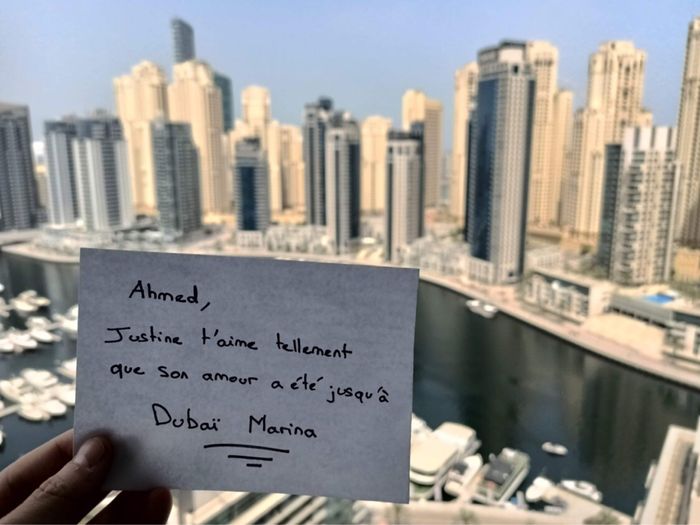 Ahmed,
Justine t'aime tellement
que son amour a été jusqu'à
Dubaï Marina